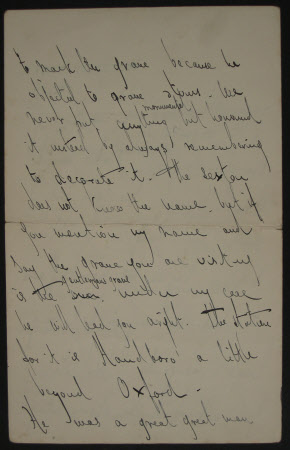 to mark the grave because he
objected to grave stones. We
never put anything monumental but honoured
it indeed by always remembering
to decorate it. The Sexton
does not know the name. but if
you mention my name and
say the grave you are visiting
is the gentleman's grave under my care
he will lead you aright. The station
for it is Handboro' a little
beyond Oxford.
He was a great great man.